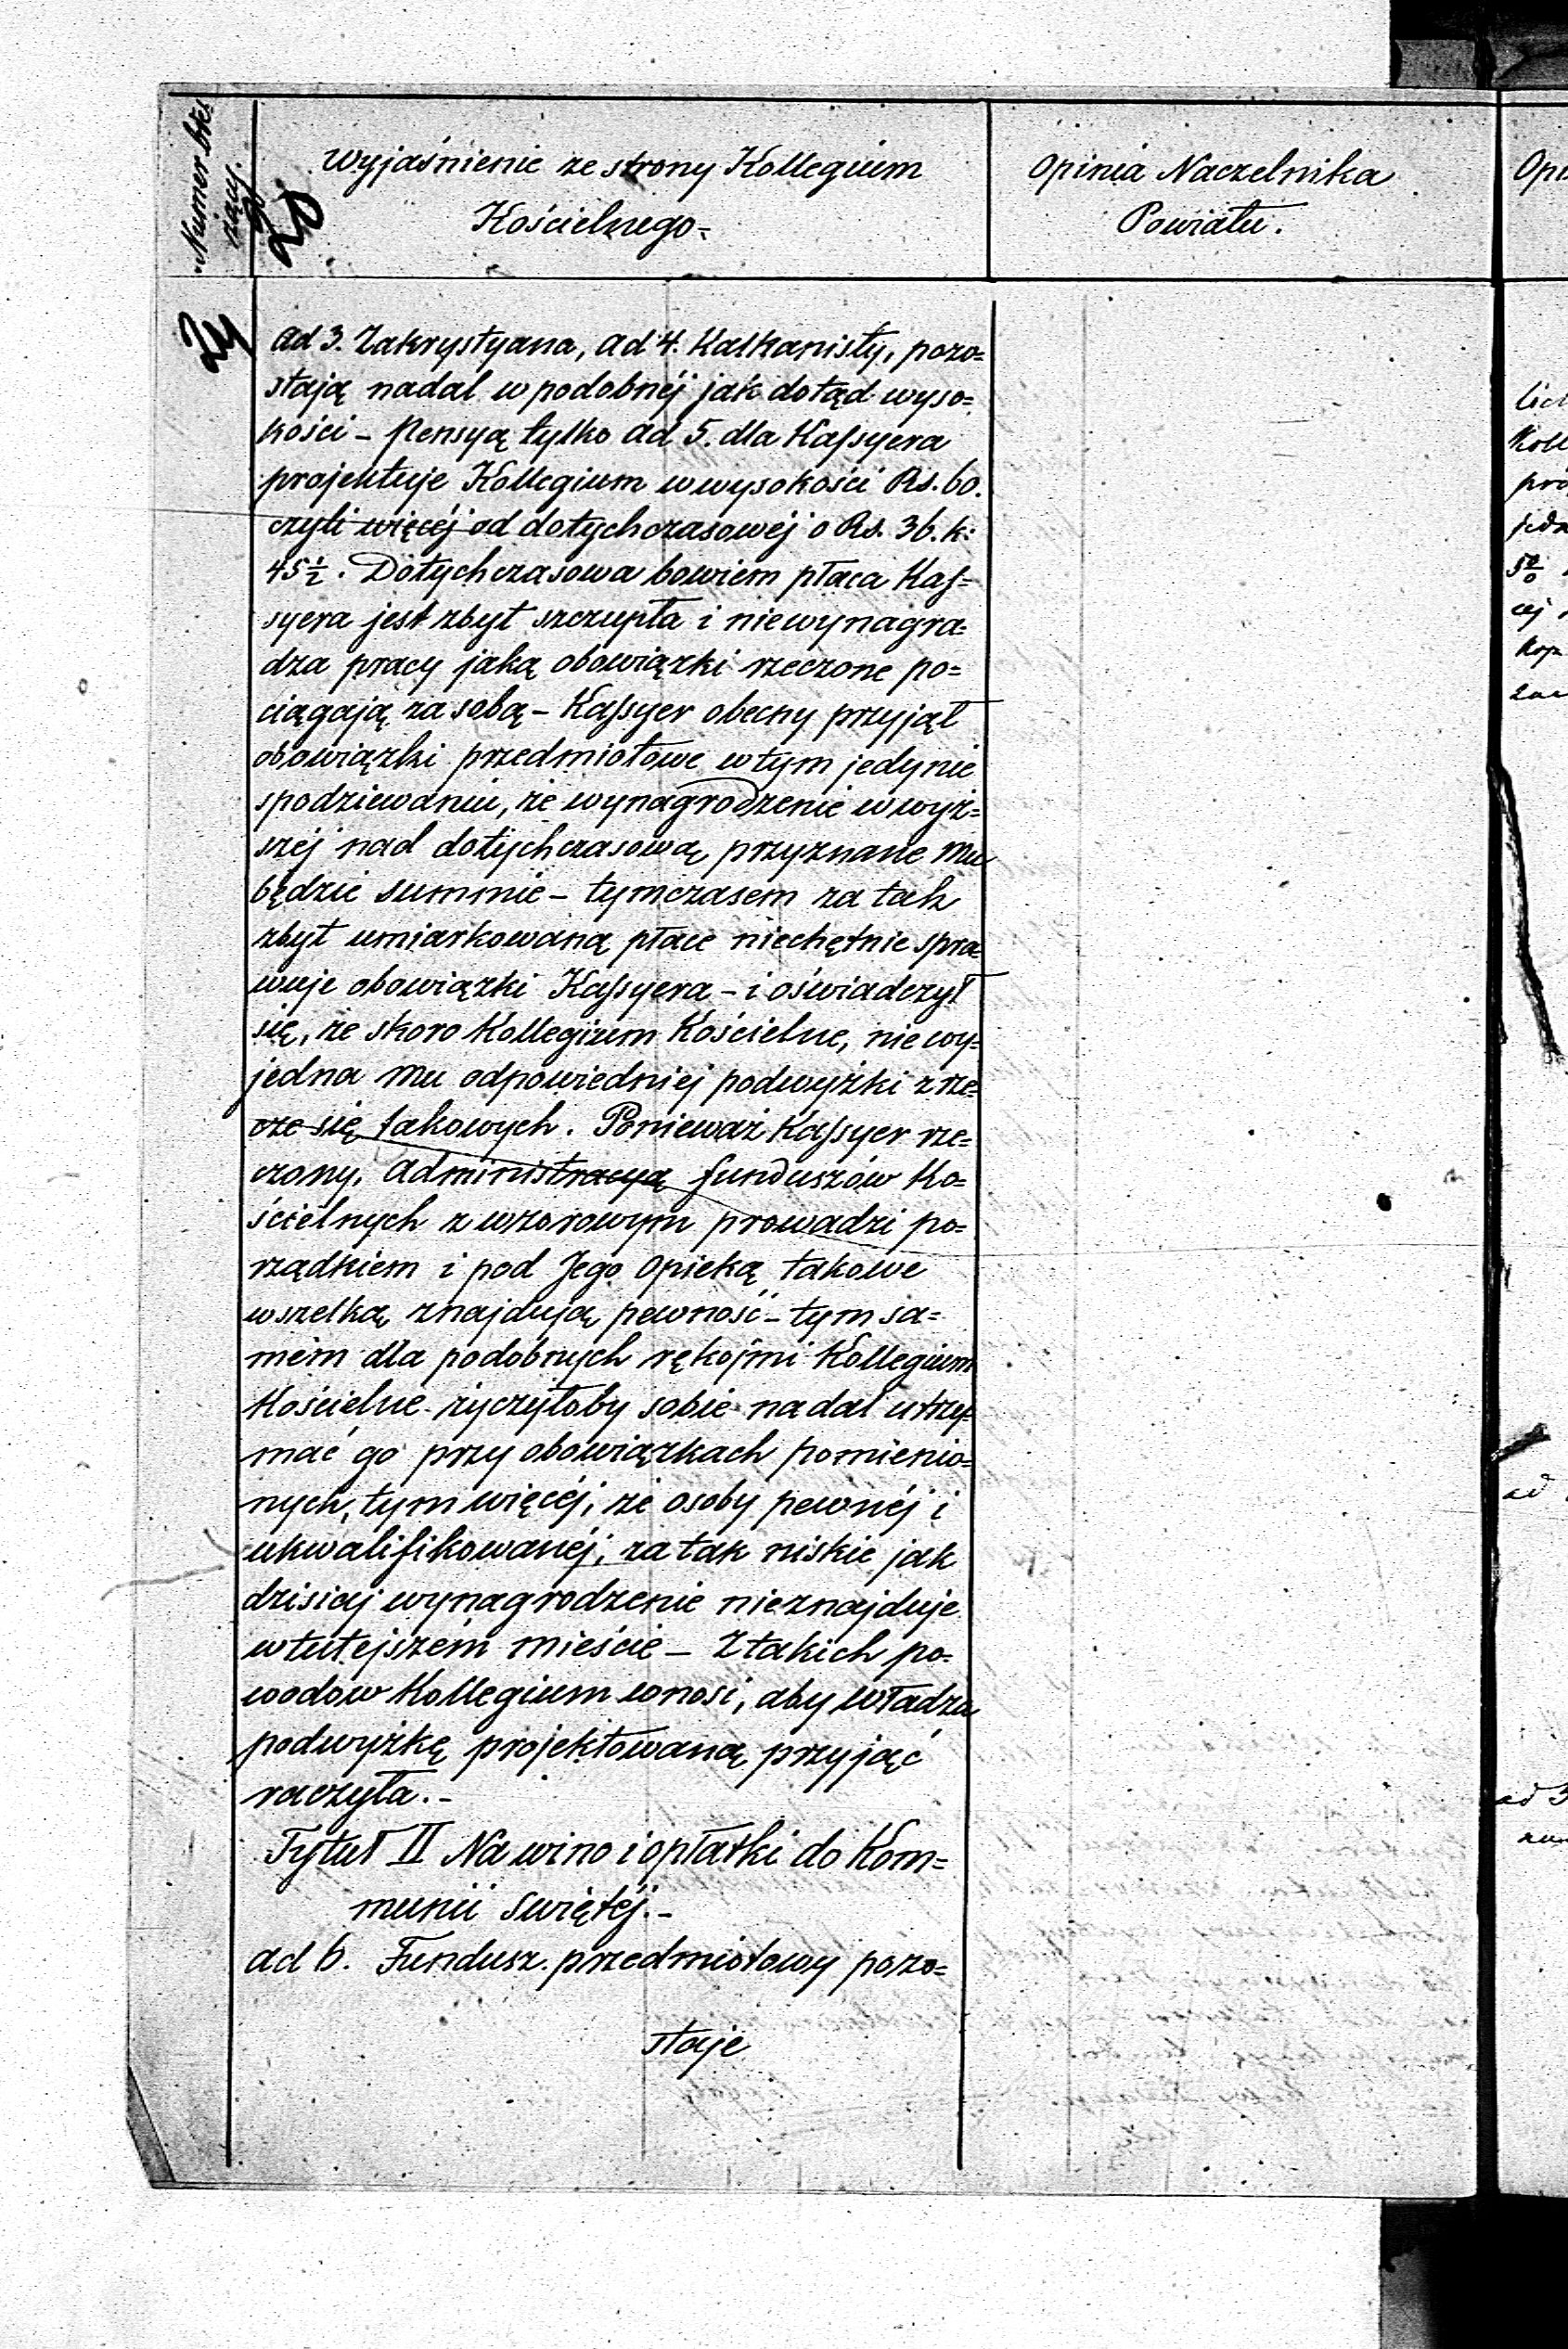 Numer bie=
żący.
Wyjaśnienie ze strony Kollegium
Kościelnego=
Opinia Naczelnika
Powiatu.
20
ad 3. Zakrystyana, ad 4. Kalkanisty, pozo=
stają nadal w podobnéj jak dotąd wyso=
kości – Pensyą tylko ad 5. dla Kassyera
projektuje Kollegium w wysokości Rs. 60.
czyli więcéj od dotychczasowéj o Rs. 36. k:
45½. Dotychczasowa bowiem płaca Kas=
syera jest zbyt szczupła i niewynagra=
dza pracy jaką obowiązki rzeczone po=
ciągają za sobą – Kassyer obecny przyjął
obowiązki przedmiotowe w tym jedynie
spodziewaniu, że wynagrodzenie w wyż=
széj nad dotychczasową przyznane mu
będzie summie – tymczasem za tak
zbyt umiarkowaną płace niechętnie spra=
wuje obowiązki Kassyera – i oświadczył
się, że skoro Kollegium Kościelne, nie wy=
jedna mu odpowiedniej podwyżki zrze=
cze się takowych. Ponieważ Kassyer rze=
czony, administracyą funduszów Ko=
ścielnych z wzorowym prowadzi po=
rządkiem i pod Jego opieką takowe
wszelką znajdują pewność – tym sa=
mém dla podobnych rękojmi Kollegium
Kościelne życzyłoby sobie nadal utrzy=
mać go przy obowiązkach pomienio=
nych, tym więcéj, że osoby pewnéj i
ukwalifikowanéj, za tak niskie jak
dzisiaj wynagrodzenie nieznajduje
w tutejszém mieście – Z takich po=
wodów Kollegium wnosi, aby władza
podwyżkę projektowaną przyjąć
raczyła. –
Tytuł II Na wino i opłatki do Kom=
munii świętéj. –
ad 6. Fundusz przedmiotowy pozo=
staje